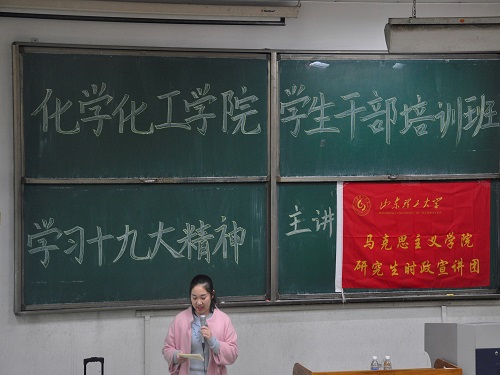 化学化工学院 学生干部培训班
学习十九大精神
主讲
山东理工大学
马克思主义学院
研究生时政宣讲团